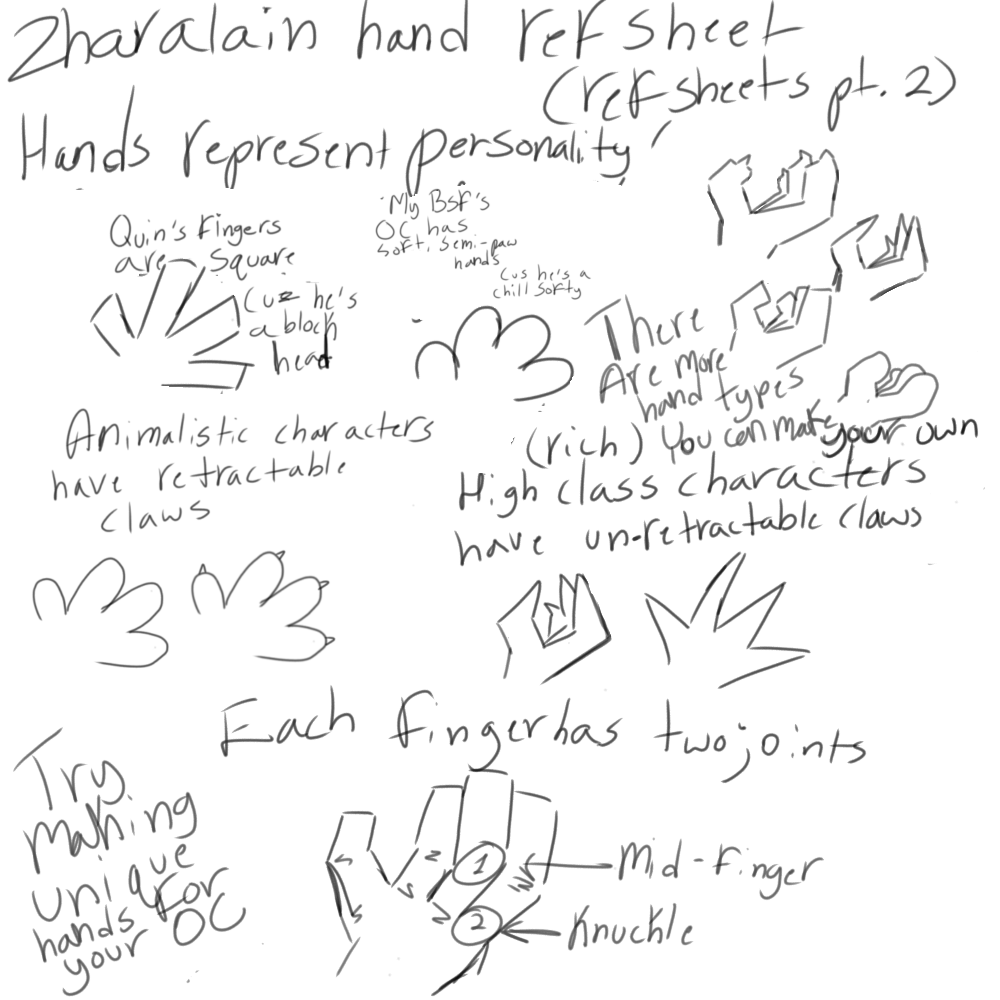 Zharalain hand ref sheet
(ref sheets pt. 2)
Hands represent personality
Quin's fingers
are square
Cuz he's
a block
head
My Bsf's
OC has
soft, semi-paw
hands
Cus he's a
chill softy
There
Are more
hand types
You can make your own
Animalistic characters
have retractable
claws
(rich)
High class characters
have un-retractable claws
Each finger has two joints
Try
Making
unique
hands for
your OC
1
Mid-finger
2
Knuckle